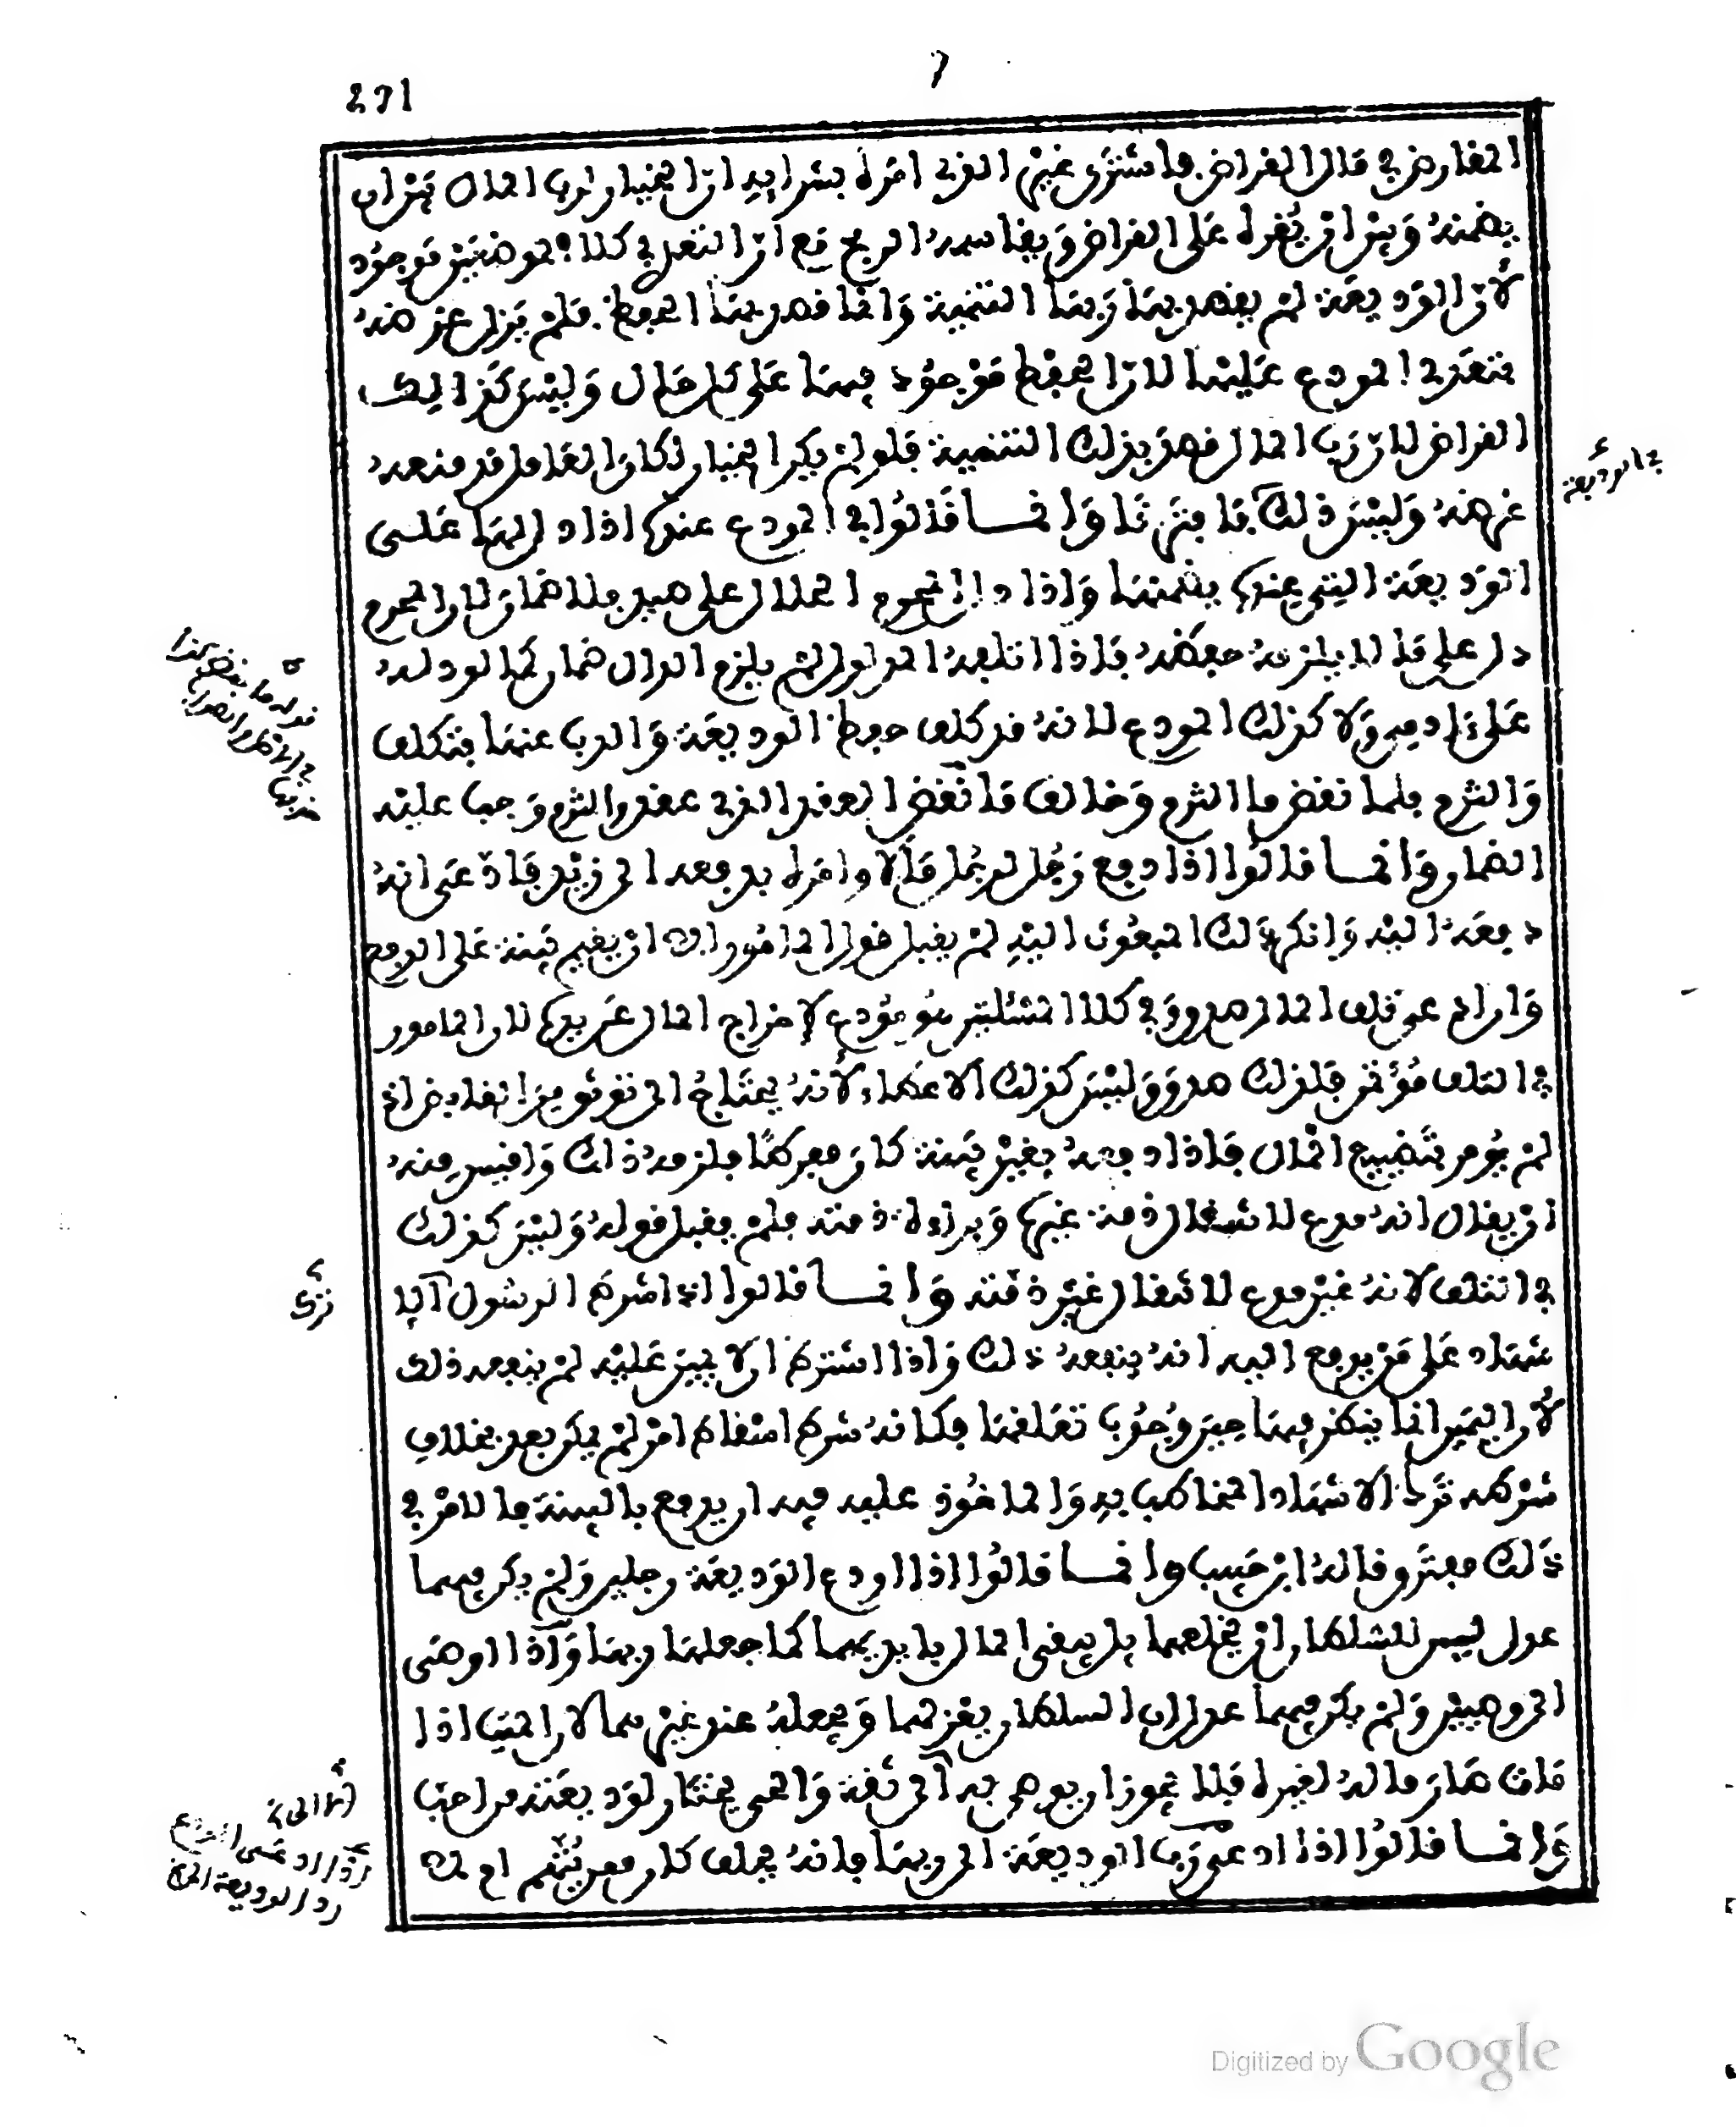 7
271
المقارض في مال القراض فاشترى غير الذي امره بشرايه ان الخيار لرب المال بين ان
يضمنه وبين ان يقره على القراض ويقاسمه الربح مع ان التعدي في كلا الموضعين موجود
لأن الوديعة لم يقصد بها ربها التنمية وانما قصد بها الحفظ فلم يزل غرضه
بتعدي المودع عليها لان الحفظ موجود فيها على كل حال وليس كذلك
القراض لان رب المال قصد بذلك التنمية فلو لم يكن الخيار لكان العامل قد منعه
غرضه وليس ذلك
وانما قالوا في المودع عنده اذا دل لصا على
الوديعة التي عنده يضمنها واذا دل المحرم الحلال على صيد فلا ضمان لان المحرم
دل على ما لا يلزمه حفظه فاذا اتلفه المدلول لم يلزم الدال ضمان كما لو دله
على ادمي ولا كذلك المودع لانه قد كلف حفظ الوديعة والذب عنها بتكلف
والتزم فلما نقض ما التزم وخالف ما نقض العقد الذي عقد والتزم وجب عليه
الضمان وانما قالوا اذا دفع رجل لرجل مالا وامره بدفعه الى زيد فادعى انه
دفعه اليه وانكر ذلك المبعوث اليه لم يقبل قول المامور الا ان يقيم بينة على الدفع
وان ادعى تلف المال صدق وفي كلا المسئلتين هو مودع لإخراج المال عن يده لان المامور
في التلف مؤتمن فلذلك صدق وليس كذلك الاعطاء لأنه يحتاج الى توثق من القابض اذ
لم يؤمر بتضييع المال فاذا دفعه بغير بينة كان مفرطا فلزمه ذلك وافيس منه
ان يقال انه مدع لاشغال ذمة غيره وبراءة ذمته فلم يقبل قوله وليس كذلك
في التلف لانه غير مدع لاشغال غير ذمته وانما قالوا اذا شرط الرسول الا
شهاد على من يدفع اليه انه ينفعه ذلك واذا اشترط ان لا يمين عليه لم ينفعه ذلك
لأن اليمين انما ينظر فيها حين وجوب تعلقها فكانه شرط اسقاط امر لم يكن بعد بخلاف
شرطه ترك الاشهاد المخاطب به والماخوذ عليه فيه ان يدفع بالبينة فالامر في
ذلك مفترق قاله ابن حبيب وانما قالوا اذا اودع الوديعة رجلين ولم يكن فيهما
عدل ليس للسلطان ان يخلعهما بل يبقي المال بايديهما كما جعلها ربها واذا اوصى
الى وصيين ولم يكن فيهما عدل ان السلطان يعزلهما ويجعله عند غيرهما لان الميت اذا
مات صار ماله لغيره فلا يجوز ان يوصى به الى غير ثقة والحي يختار لوديعته من احب
وانما قالوا اذا ادعى رب الوديعة الى ربها فانه يحلف كان ممن يتهم ام لا
في الوديعة
قوله ما نقض كذا
في الاصل
نرى
اذا ادعى المودع
رد الوديعة الخ
Digitized by Google